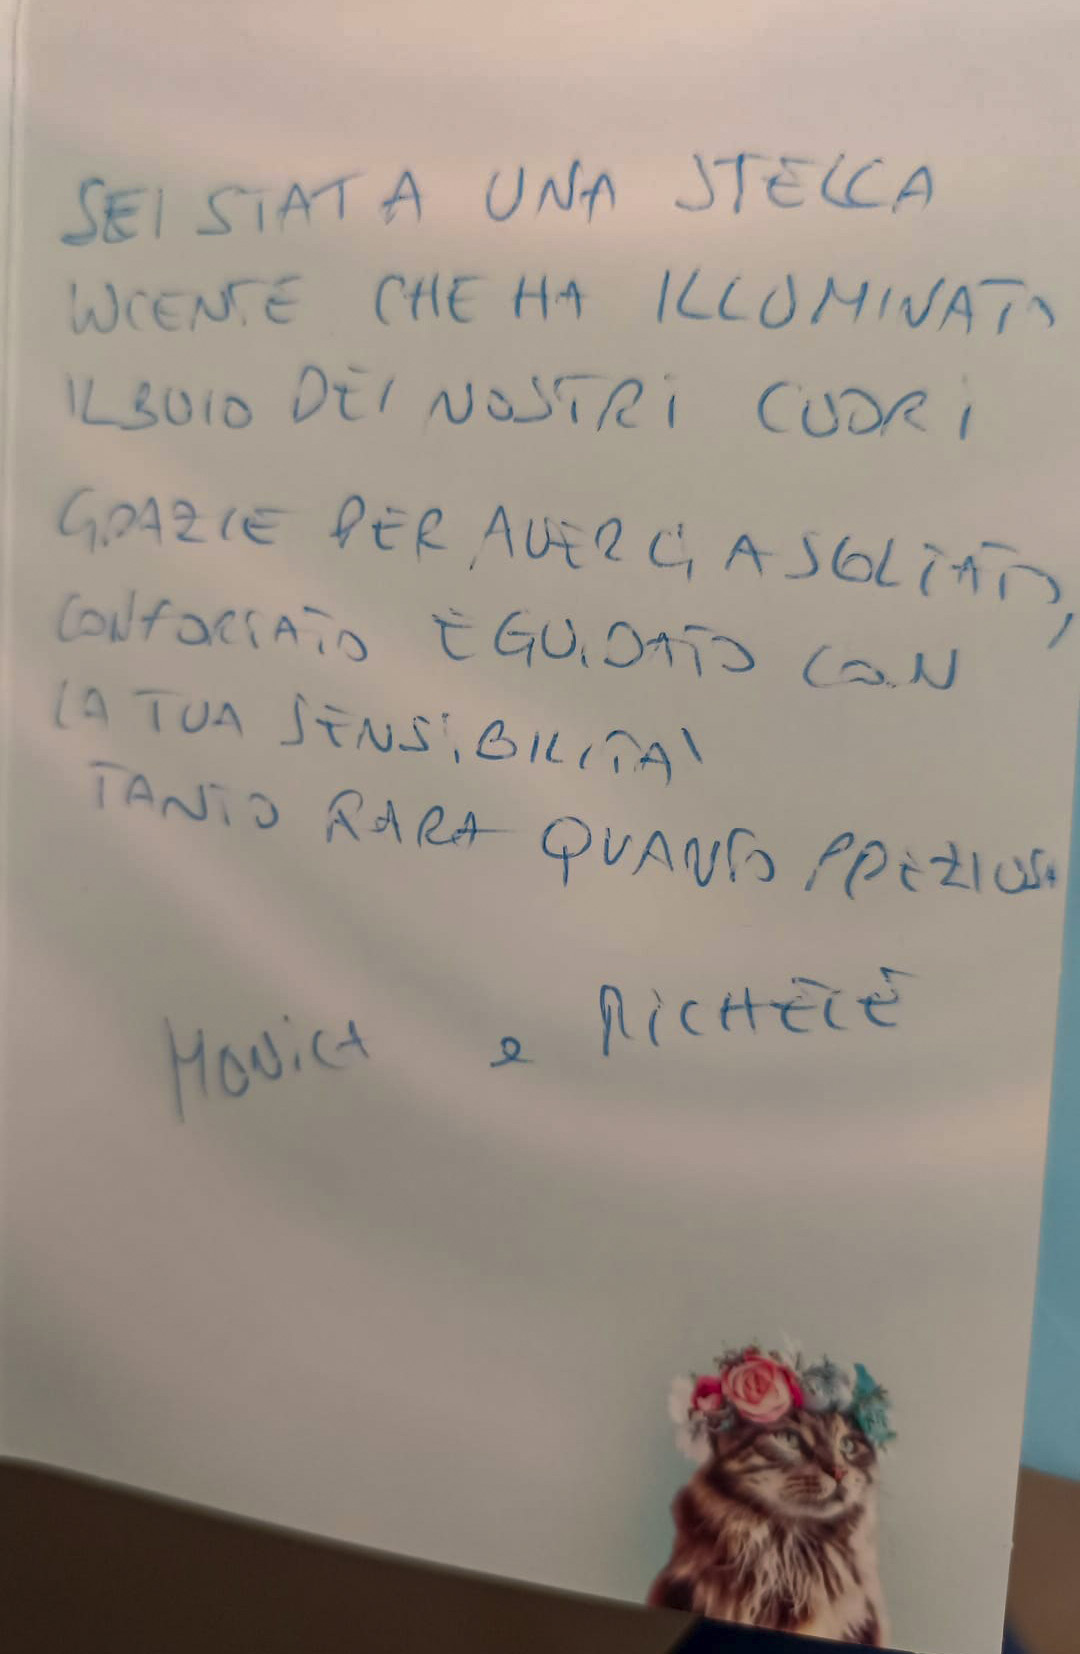 SEI STATA UNA STELLA
LUCENTE CHE HA ILLUMINATO
IL BUIO DEI NOSTRI CUORI
GRAZIE PER AVERCI ASCOLTATO,
CONFORTATO E GUIDATO CON
LA TUA SENSIBILITA'
TANTO RARA QUANTO PREZIOSA
MONICA e MICHELE